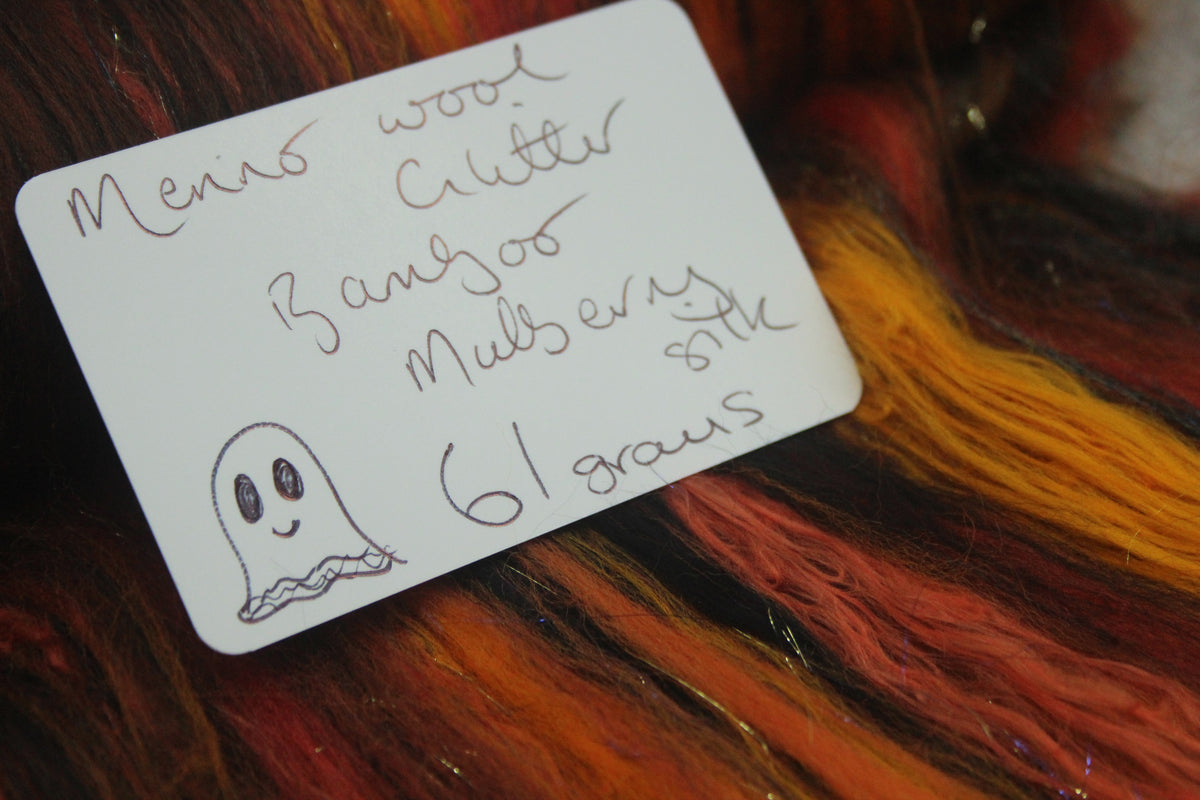 Merino wool
Glitter
Bamboo
Mulberry
silk
61 grams